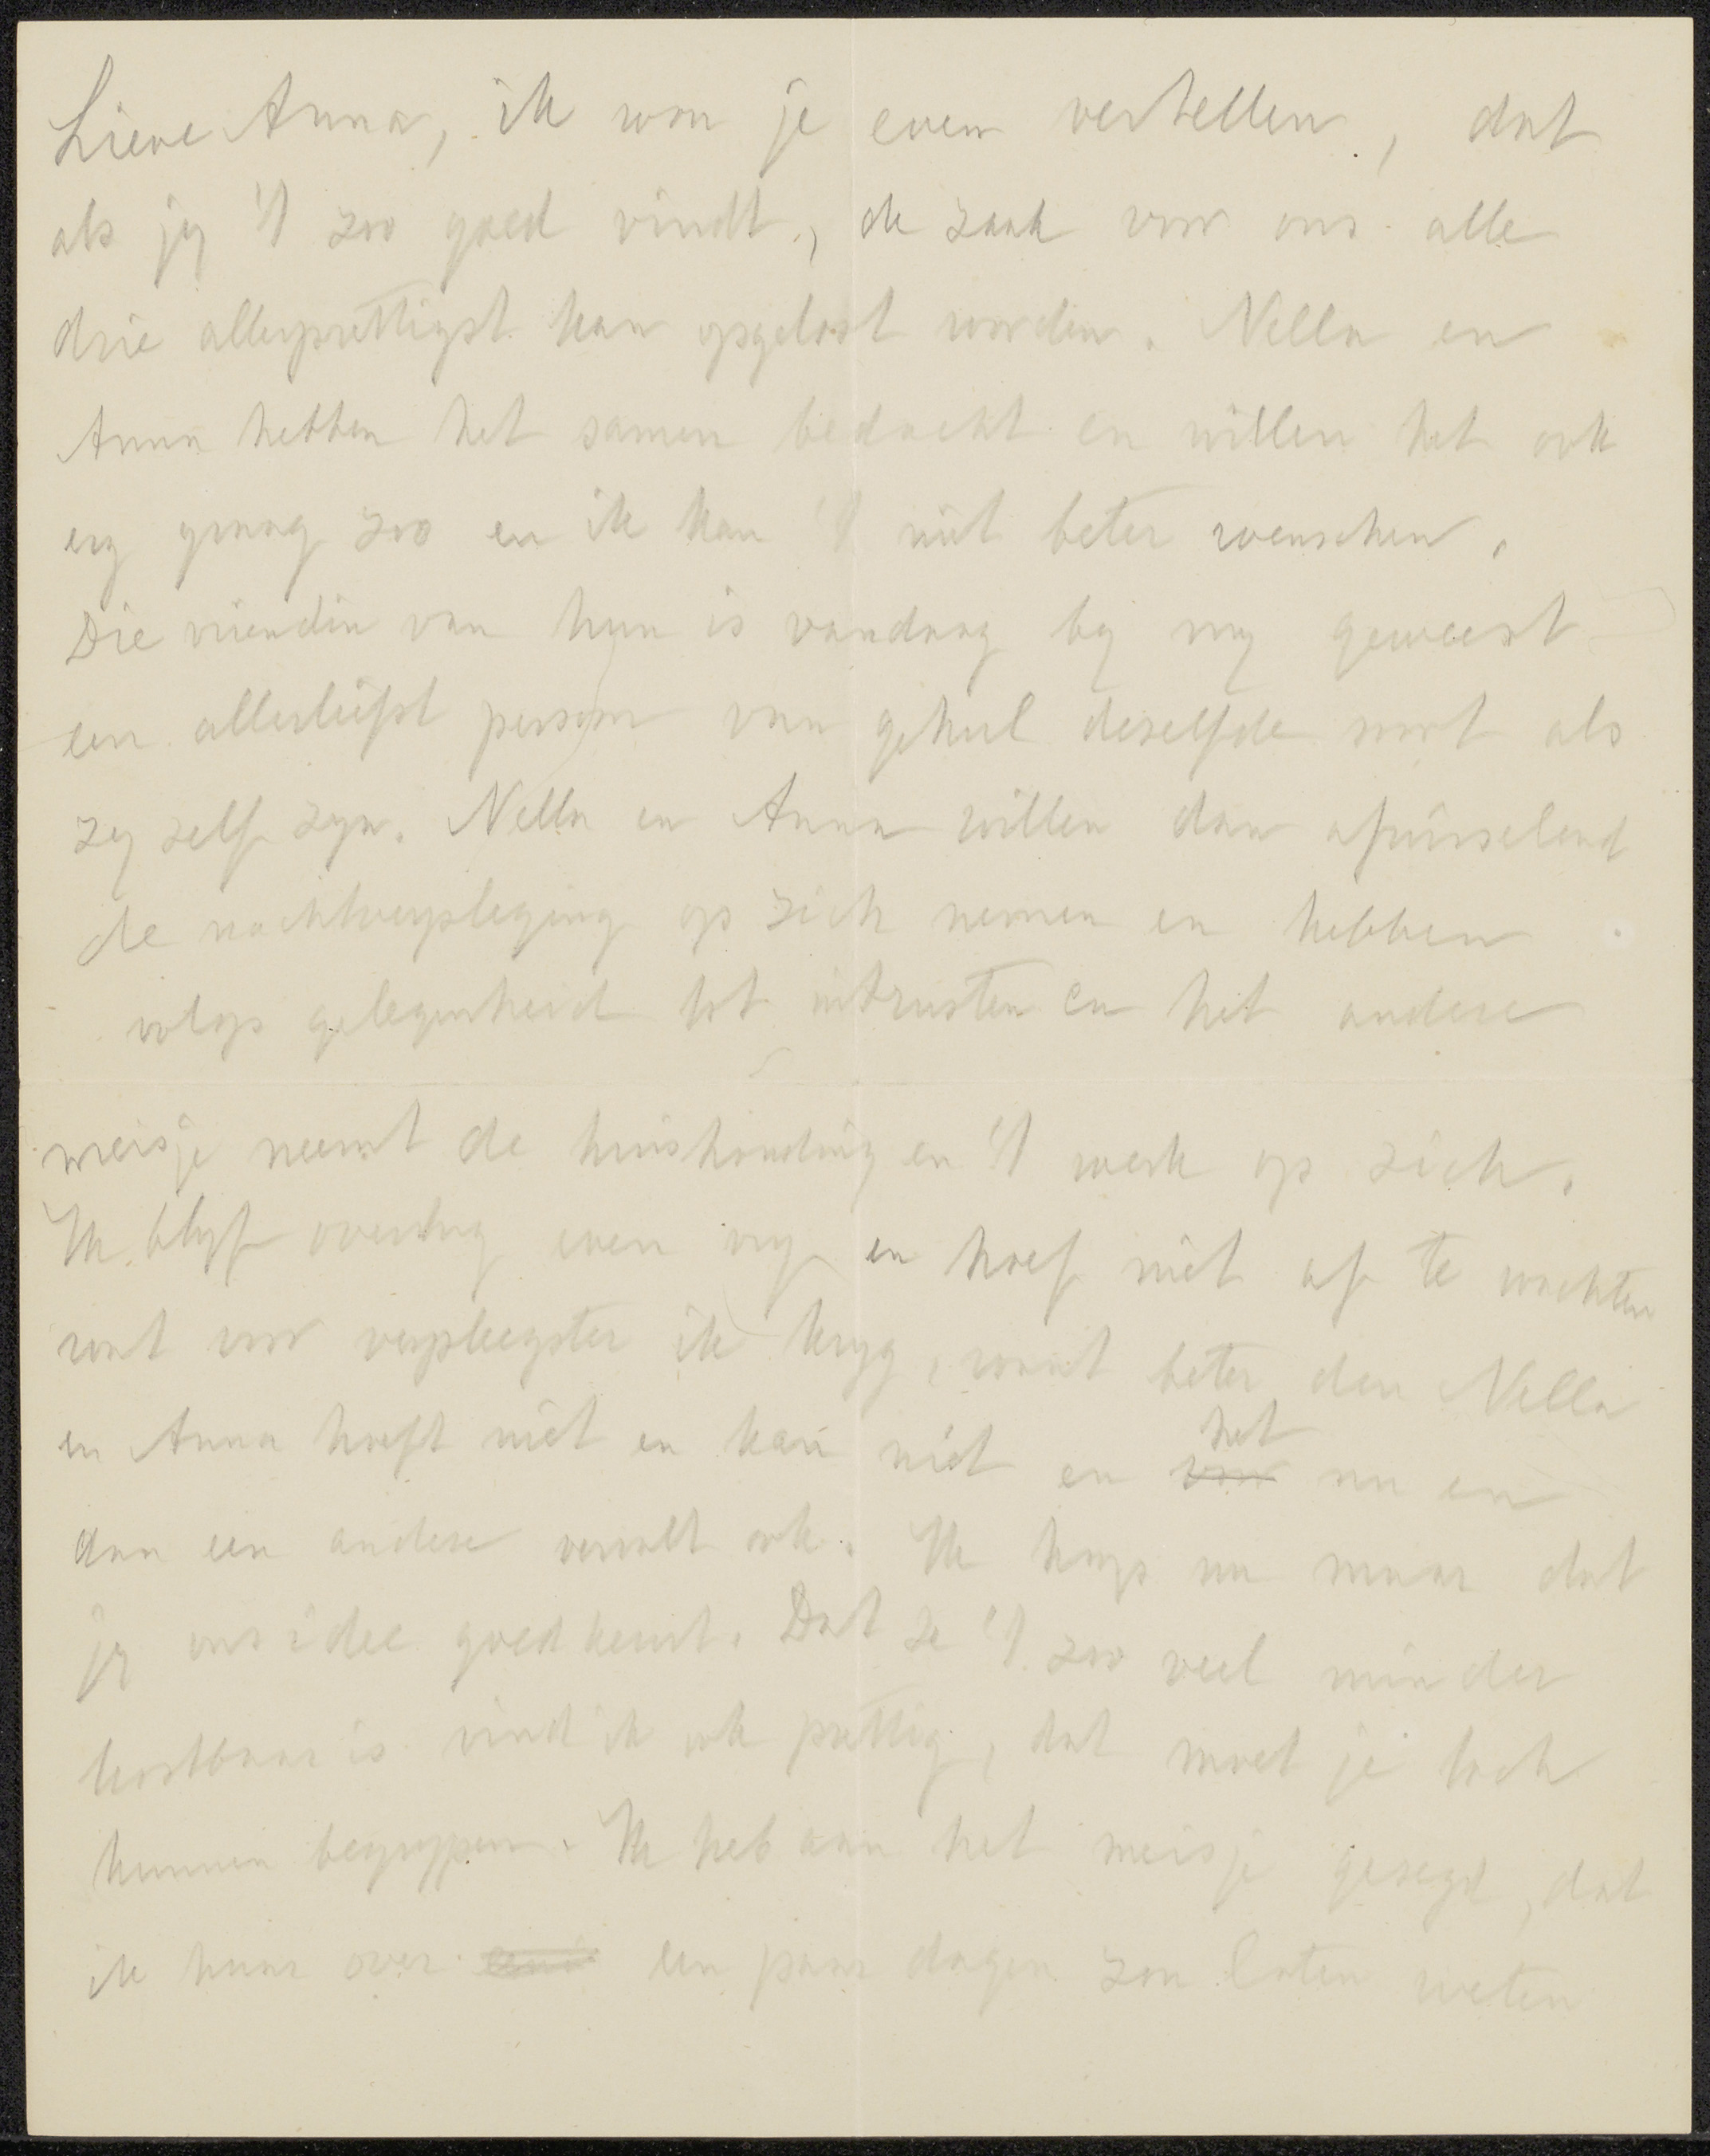 Lieve Anna, ik wou je even vertellen, dat
als jy 't zoo goed vindt, de zaak voor ons alle
drie allerprettigst kan opgelost worden. Nella en
Anna hebben het samen bedacht en willen het ook
erg graag zoo en ik kan 't niet beter wenschen.
Die vriendin van hun is vandaag by my geweest
een allerliefst persoon van geheel deselfde soort als
zy zelf zyn. Nella en Anna willen dan afwisselend
de nachtverpleging op zich nemen en hebben
volop gelegenheid tot uitrusten en het andere
meisje neemt de huishouding en 't werk op zich.
Ik blyf overdag even vry en hoef niet af te wachten
wat voor verpleegster ik kryg, want beter dan Nella
en Anna hoeft niet en kan niet en voor het nu en
dan een andere vervalt ook. Ik hoop nu maar dat
jy ons idee goedkeurt. Dat ze 't zoo veel minder
kostbaar is vind ik ook prettig, dat moet je toch
kunnen begrypen. Ik heb aan het meisje gezegd, dat
ik haar over een paar dagen zou laten weten